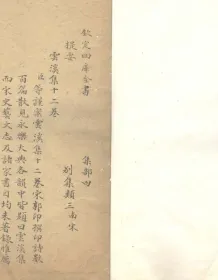 欽定四庫全書 集部四
提要 別集類三南宋
雲溪集十二卷
臣等謹案雲溪集十二卷宋郭印撰印詩歌
百篇散見永樂大典各韻中皆題曰雲溪集
而宋史藝文志及諸家書目均未著錄惟